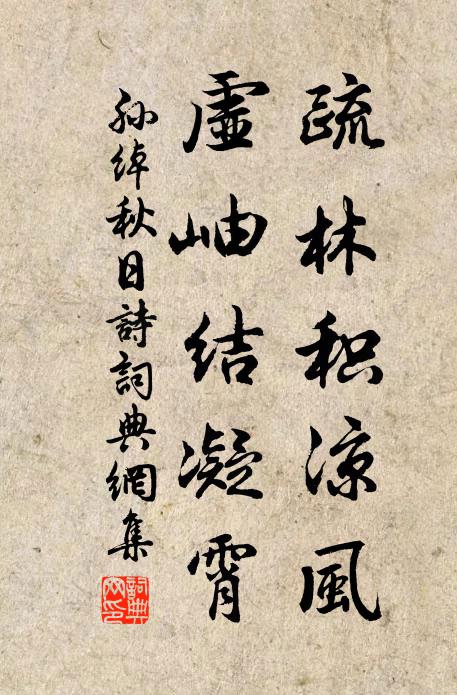 疏林积凉風
虛岫结凝霄
孙绰秋日詩詞典網集
詞典網印